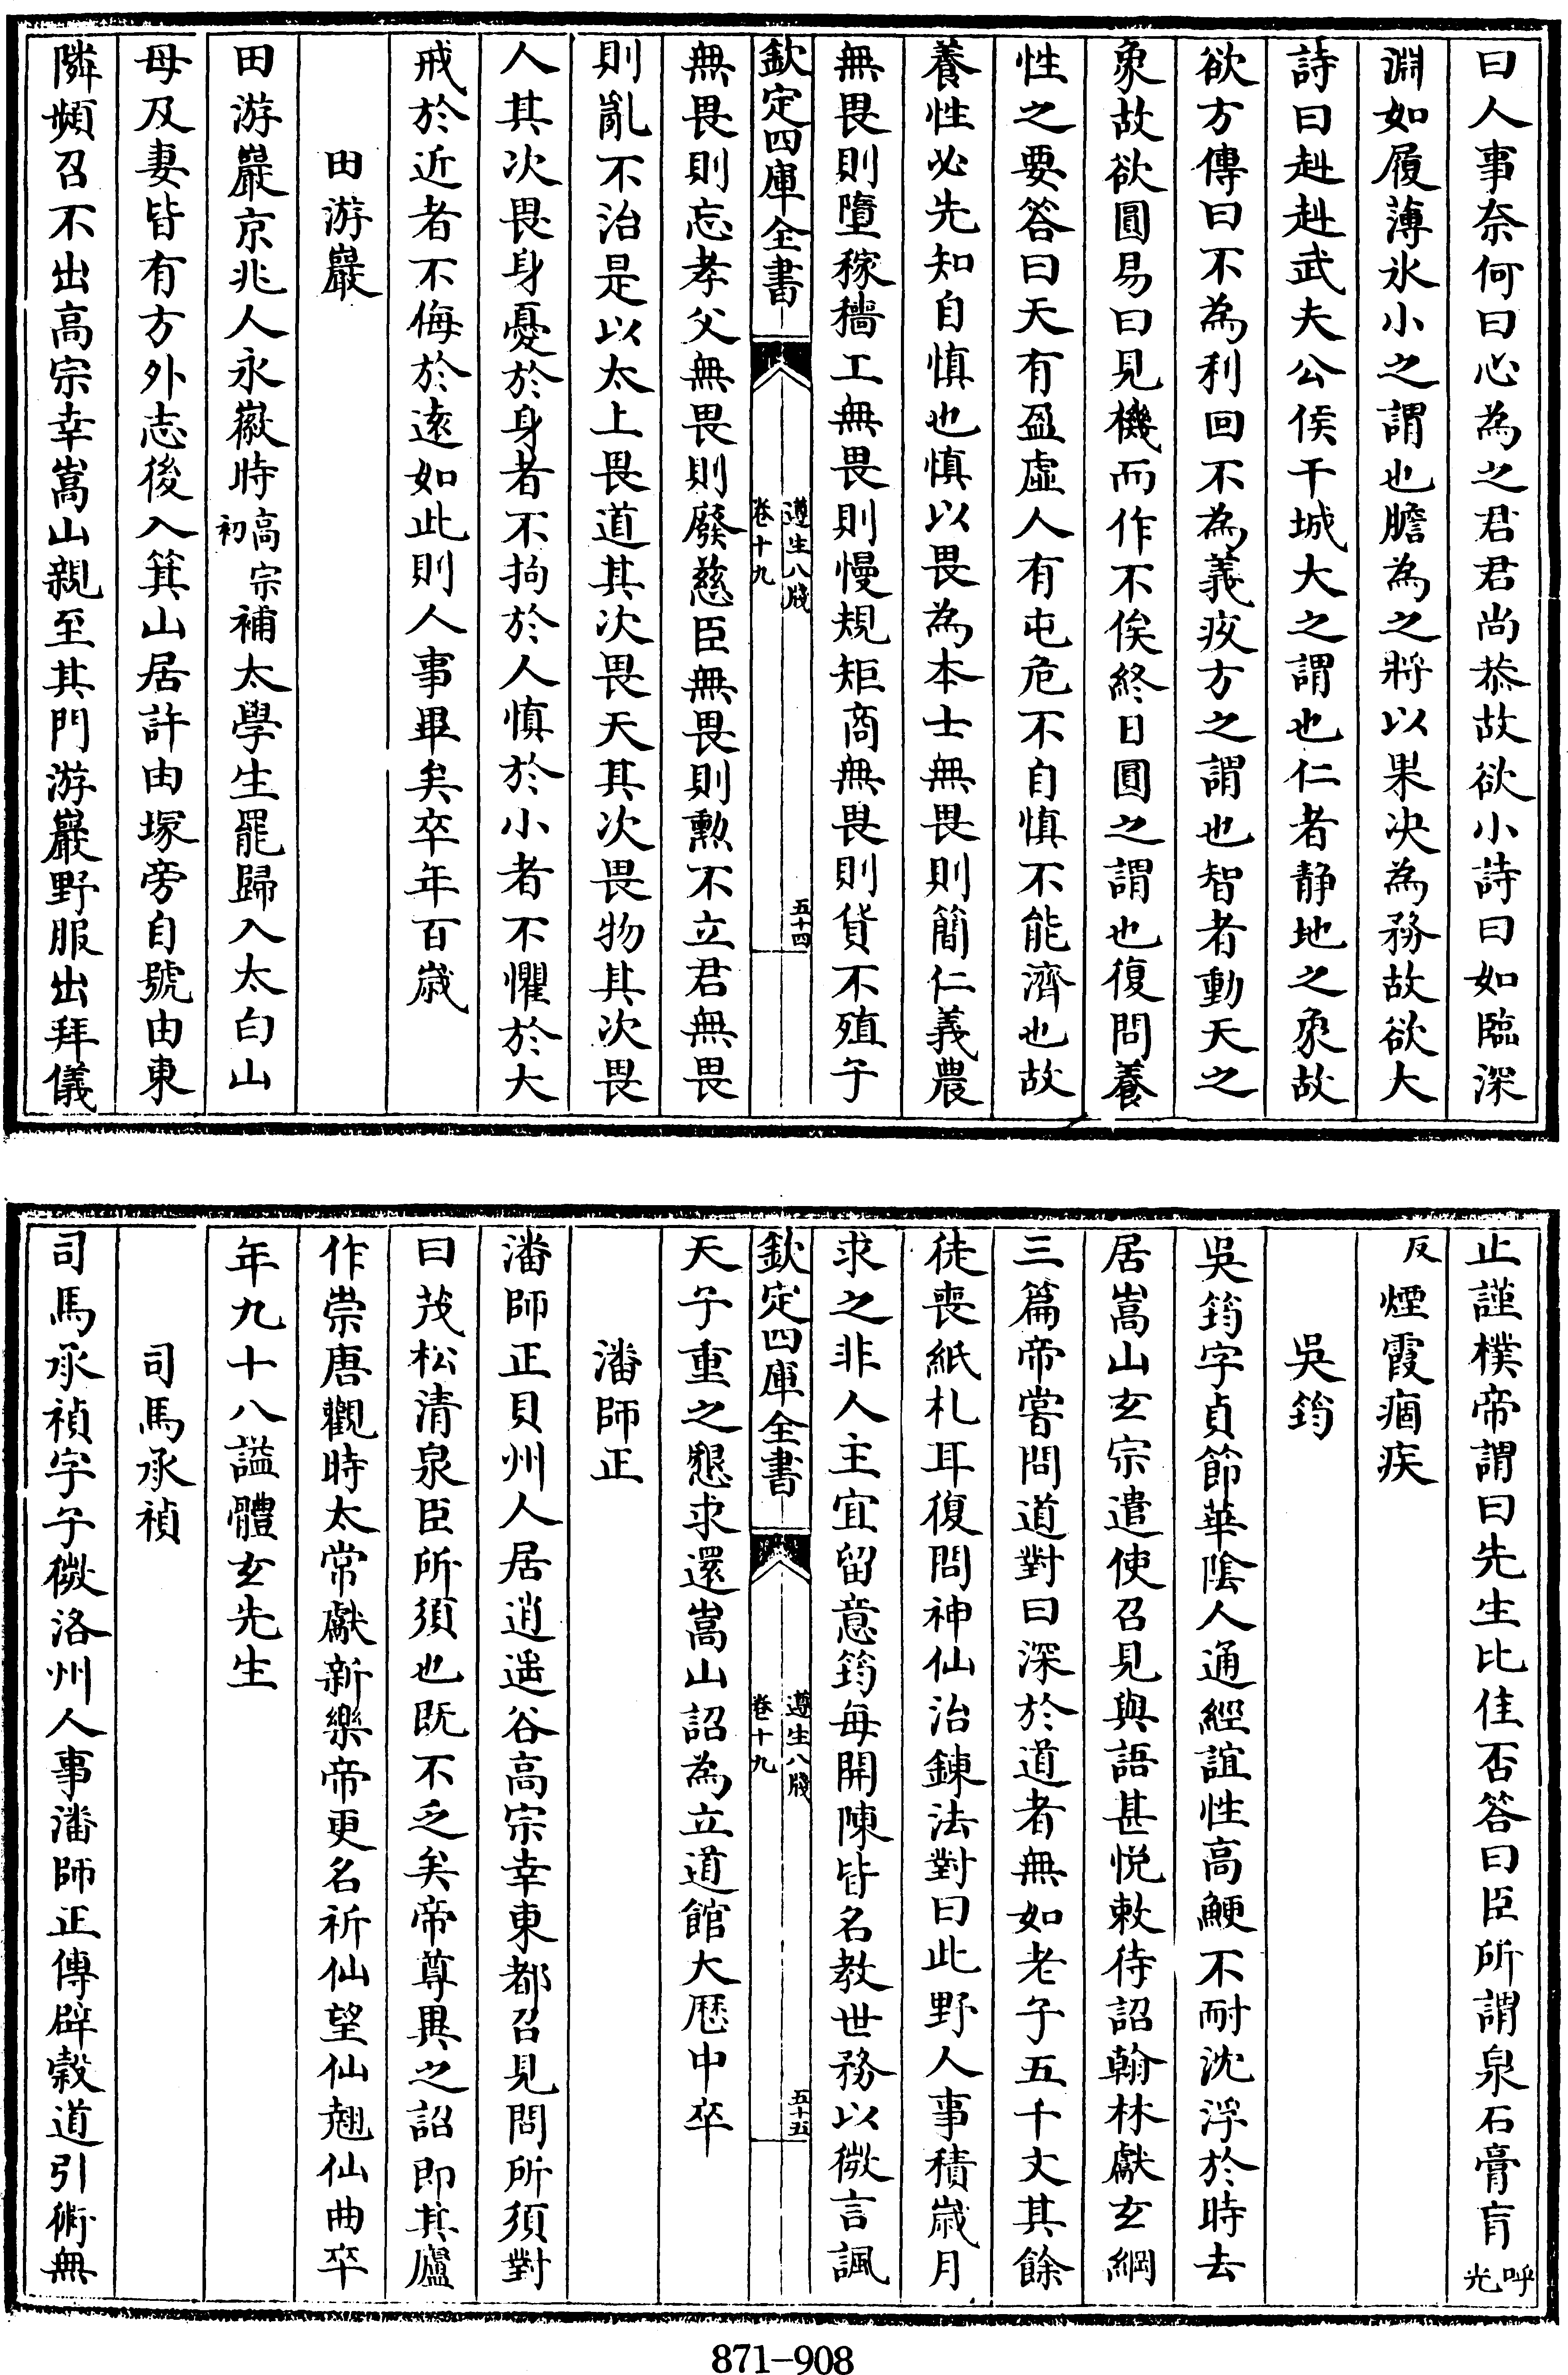 曰人事奈何曰心為之君君尚恭故欲小詩曰如臨深
淵如履薄氷小之謂也膽為之將以果决為務故欲大
詩曰赳赳武夫公侯干城大之謂也仁者静地之象故
欲方傳曰不為利回不為義疚方之謂也智者動天之
象故欲圓易曰見機而作不俟終日圓之謂也復問養
性之要答曰天有盈虛人有屯危不自慎不能濟也故
養性必先知自慎也慎以畏為本士無畏則簡仁義農
無畏則墮稼穡工無畏則慢規矩商無畏則貨不殖子
欽定四庫全書
遵生八牋
卷十九
五十四
無畏則忘孝父無畏則廢慈臣無畏則勲不立君無畏
則亂不治是以太上畏道其次畏天其次畏物其次畏
人其次畏身憂於身者不拘於人慎於小者不懼於大
戒於近者不侮於遠如此則人事畢矣卒年百歲
田游巖
田游巖京兆人永徽時高宗初補太學生罷歸入太白山
母及妻皆有方外志後入箕山居許由塚旁自號由東
隣頻召不出高宗幸嵩山親至其門游巖野服出拜儀
止謹樸帝謂曰先生比佳否答曰臣所謂泉石膏肓呼光
反煙霞痼疾
吳筠
吳筠字貞節華陰人通經誼性高鯁不耐沈浮於時去
居嵩山玄宗遣使召見與語甚悅敕待詔翰林獻玄綱
三篇帝嘗問道對曰深於道者無如老子五千文其餘
徒喪紙札耳復問神仙治鍊法對曰此野人事積歲月
求之非人主宜留意筠每開陳皆名教世務以微言諷
欽定四庫全書
遵生八牋
卷十九
五十五
天子重之懇求還嵩山詔為立道館大歷中卒
潘師正
潘師正貝州人居逍遥谷高宗幸東都召見問所須對
曰茂松清泉臣所須也既不乏矣帝尊異之詔即其廬
作崇唐觀時太常獻新樂帝更名祈仙望仙翹仙曲卒
年九十八謚體玄先生
司馬承禎
司馬承禎字子微洛州人事潘師正傳辟穀道引術無
871-908